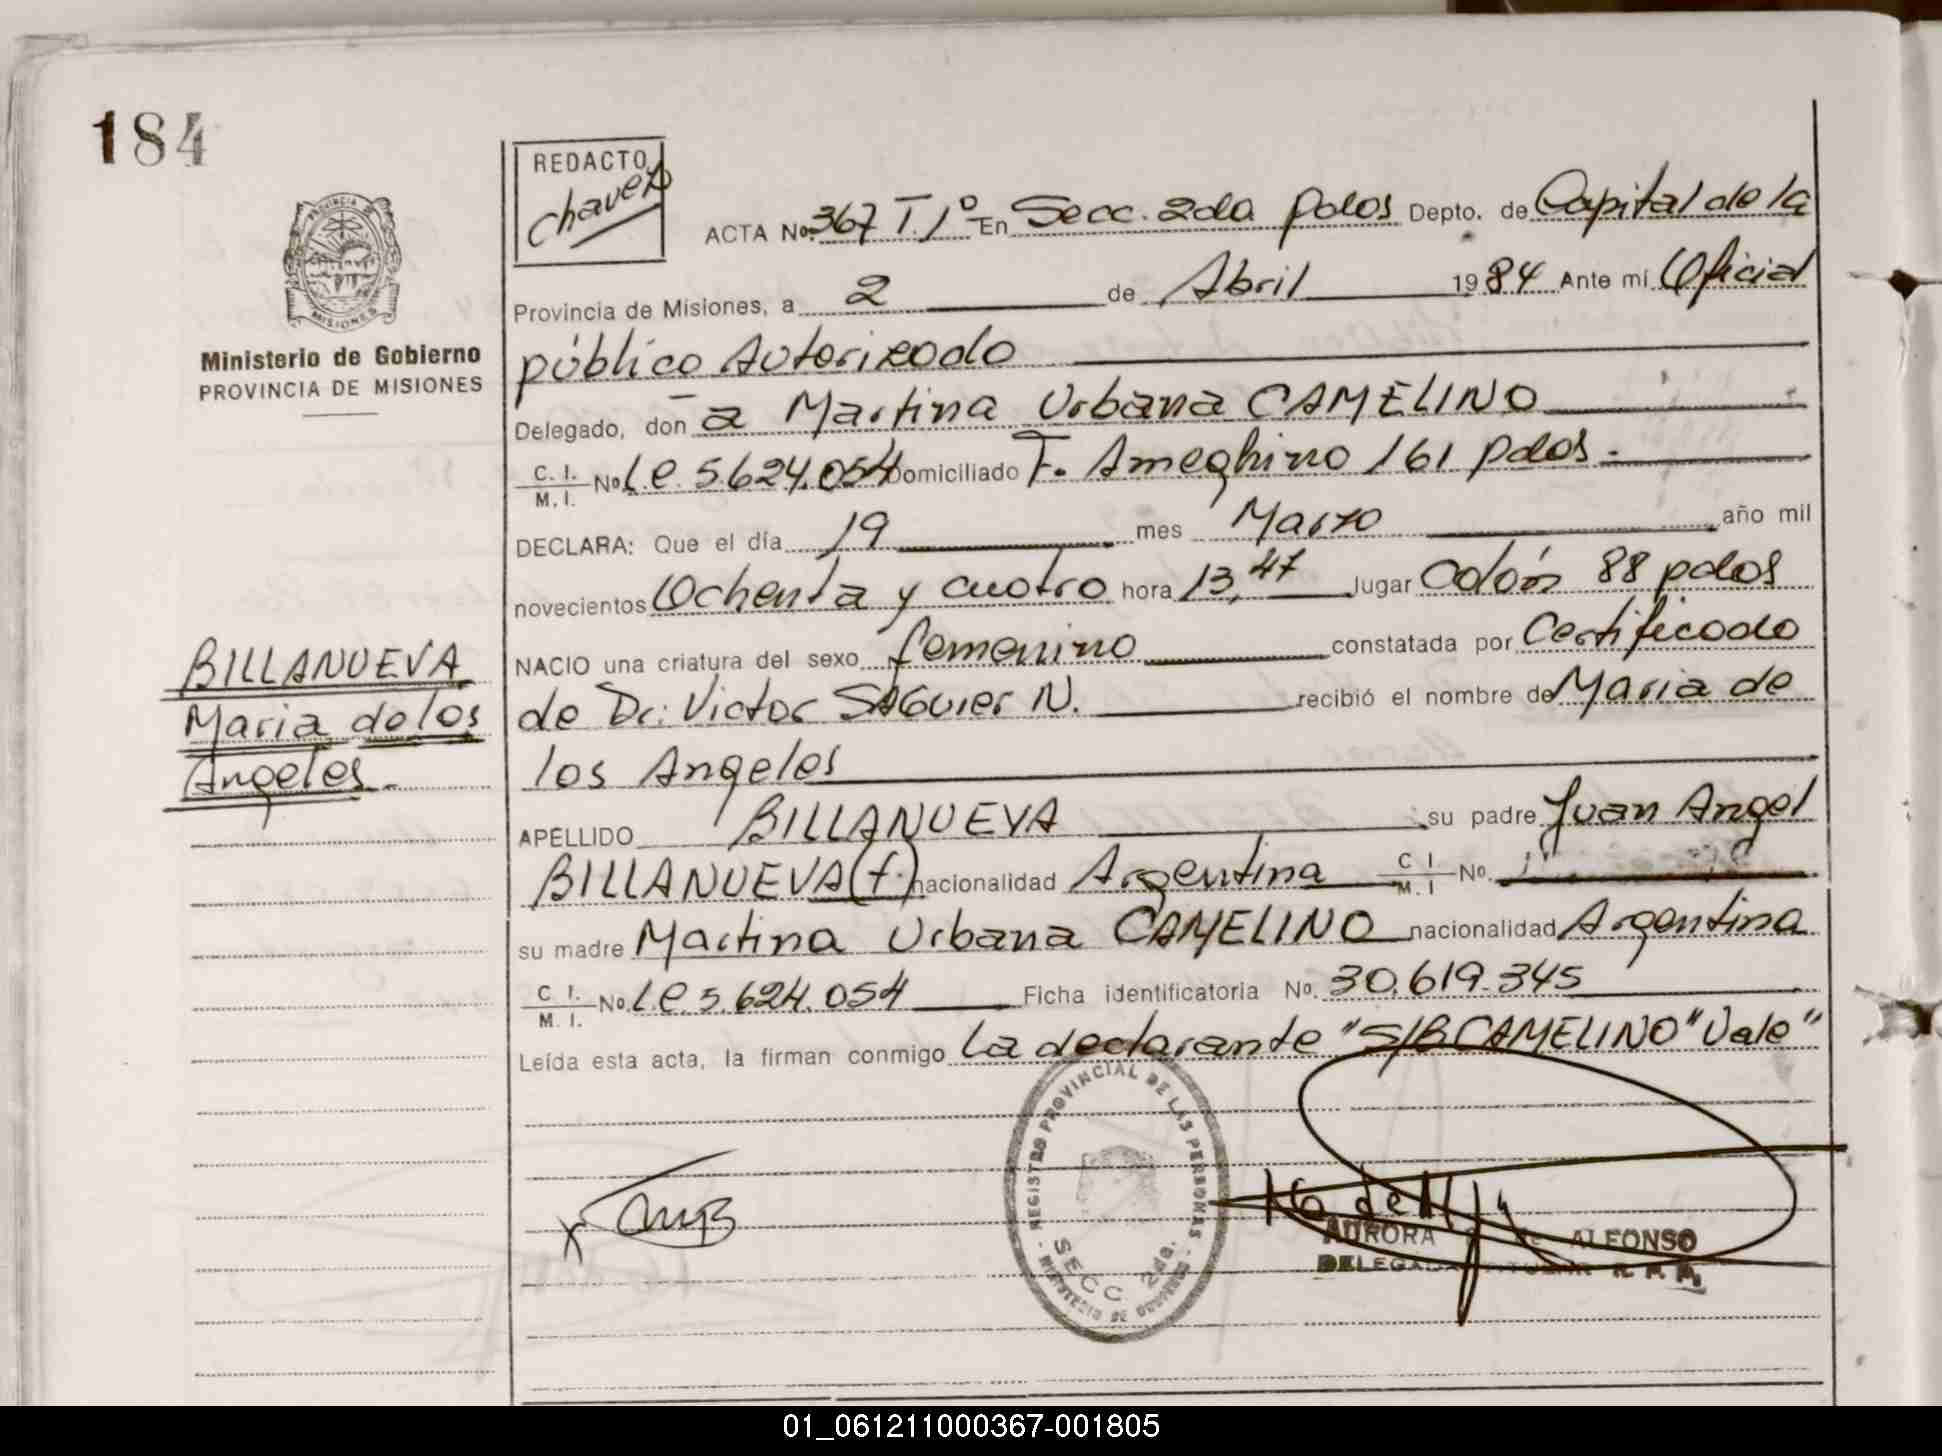 184
REDACTO
Chavez
ACTA No. 367 T. 1º En Secc. 2da Pdos Depto. de Capital de la
Provincia de Misiones, a 2 de Abril 1984 Ante mí Oficial
público Autorizado
PROVINCIA DE
MISIONES
Ministerio de Gobierno
PROVINCIA DE MISIONES
Delegado, don a Martina Urbana CAMELINO
C. I. M. I. No. L.C. 5.624.054 Domiciliado F. Ameghino 161 Pdas.
DECLARA: Que el día 19 mes Marzo año mil
novecientos Ochenta y cuatro hora 13,47 lugar Colón 88 pdas
NACIO una criatura del sexo femenino constatada por Certificado
de Dr: Victor SAGUIER N. recibió el nombre de Maria de
los Angeles
BILLANUEVA
Maria de los
Angeles.-
APELLIDO BILLANUEVA su padre Juan Angel
BILLANUEVA (f.) nacionalidad Argentina C I M. I No.
su madre Martina Urbana CAMELINO nacionalidad Argentina
C I. M. I. No. L.C 5.624.054 Ficha identificatoria No. 30.619.345
Leída esta acta, la firman conmigo La declarante "S/B CAMELINO" Vale"
REGISTRO PROVINCIAL DE LAS PERSONAS
SECC 2da.
MINISTERIO DE GOBIERNO
AURORA de ALFONSO
DELEGADA TITULAR R. P. P.
01_061211000367-001805